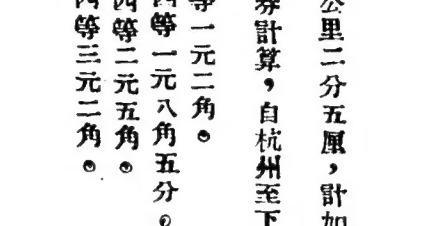 公里二分五厘，計如
券計算，自杭州至下
等一元二角。
四等一元八角五分。
四等二元五角。
四等三元二角。